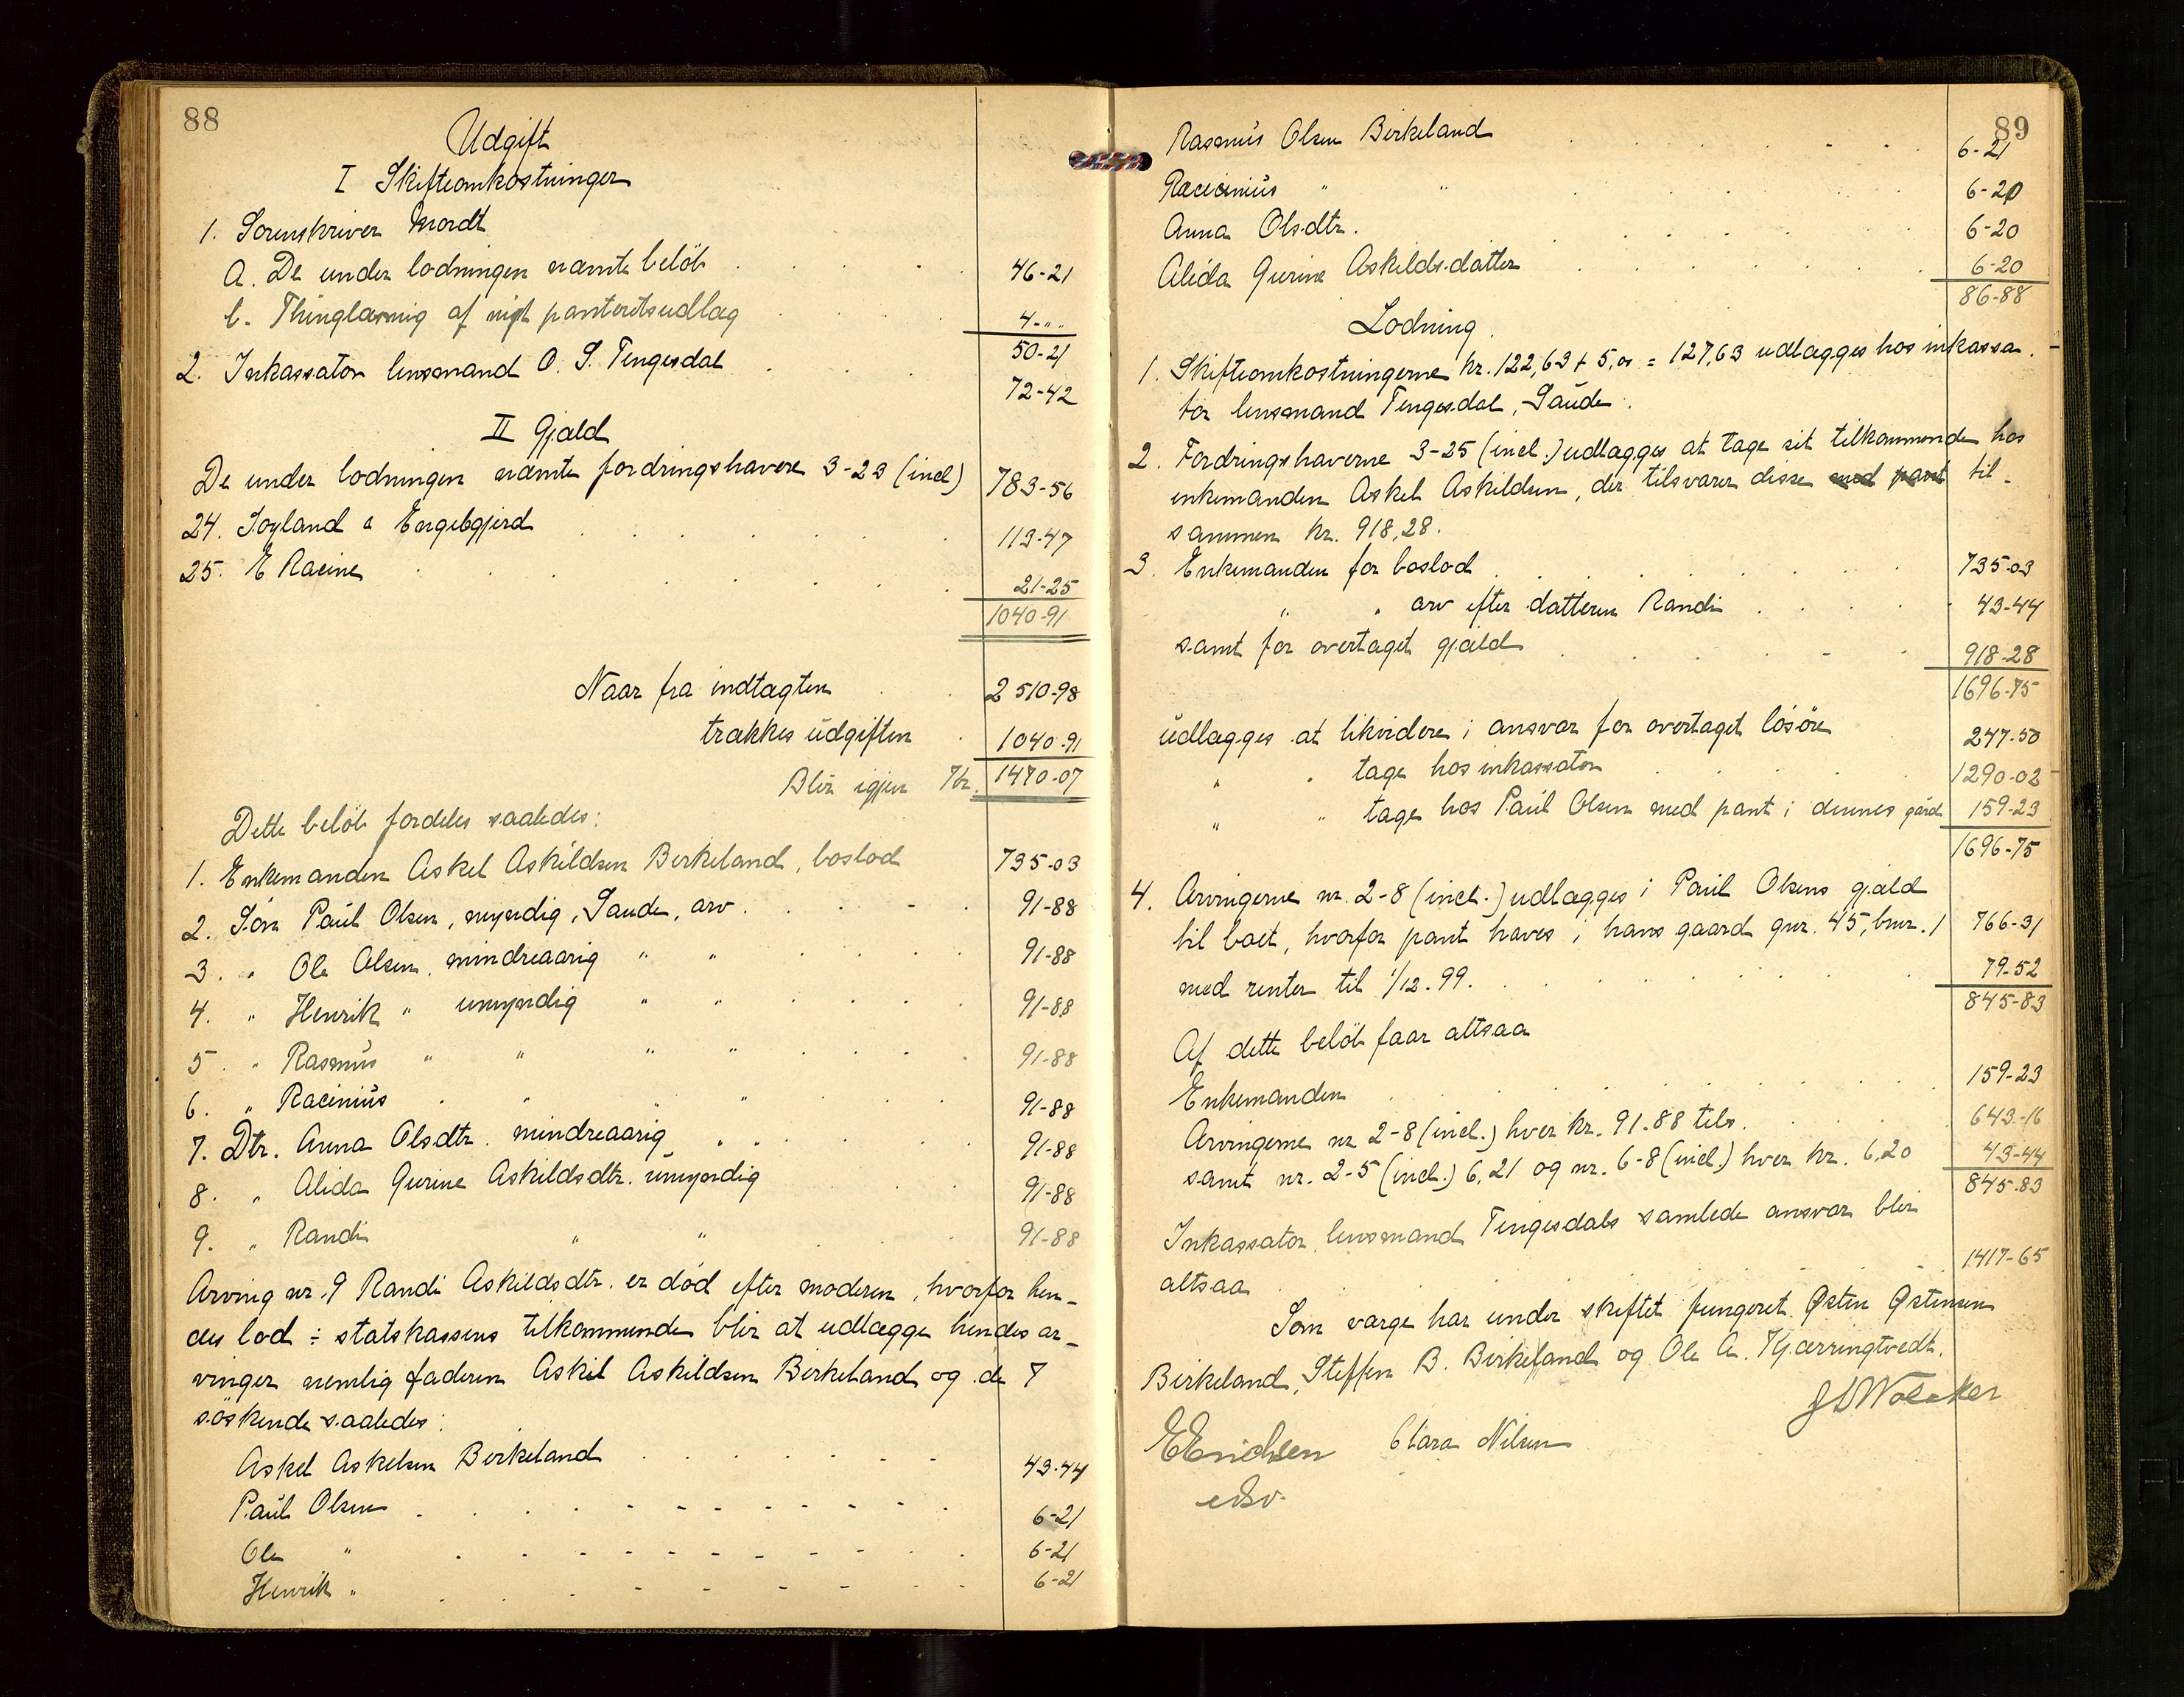 88
Udgift
I Skifteomkostninger
1. Sorenskriver Knordt
a. De under lodningen nævnte beløb . . . 46-21
b. Thinglæsning af nyt panteretsudlæg . . . 4-""
50-21
2. Inkassator lensmand O. S. Tengesdal . . . 72-42
II Gjæld
De under lodningen nævnte fordringshavere 3-23 (incl) 783-56
24. Joyland & Engelsgjerd . . . 113-47
25. E Racine . . . 21-25
1040-91
Naar fra indtægten . . 2510-98
trækkes udgiften . 1040-91
Blir igjen Kr. 1470-07
Dette beløb fordeles saaledes:
1. Enkemanden Askel Askildsen Birkeland, boslod 735-03
2. Søn Paul Olsen, myndig, Saude, arv . . . 91-88
3. " Ole Olsen, mindreaarig " " . . . 91-88
4. " Henrik " umyndig " " . . . 91-88
5. " Rasmus " " " " . . . 91-88
6. " Racinius " " " " . . . 91-88
7. Dtr. Anna Olsdtr. mindreaarig " " . . . 91-88
8. " Alida Gurine Askildsdtr. umyndig . . . 91-88
9. " Randi " " . . . 91-88
Arving nr. 9 Randi Askildsdtr. er død efter moderen, hvorfor hen-
des lod ÷ statskassens tilkommende blir at udlægge hendes ar-
vinger nemlig faderen Askil Askildsen Birkeland og de 7
søskende saaledes:
Askel Askelsen Birkeland . . . 43-44
Paul Olsen . . . 6-21
Ole " . . . 6-21
Henrik " . . . 6-21
89
Rasmus Olsen Birkeland . . . 6-21
Racinius " " . . . 6-20
Anna Olsdtr. . . . 6-20
Alida Gurine Askildsdatter . . . 6-20
86-88
Lodning.
1. Skifteomkostningerne kr. 122,63 + 5,00 = 127,63 udlægges hos inkassa-
tor lensmand Tengesdal, Saude.
2. Fordringshaverne 3-25 (incl.) udlægges at tage sit tilkommende hos
enkemanden Askel Askildsen, der tilsvarer disse med pant til-
sammen kr. 918,28.
3. Enkemanden for boslod . . . 735-03
" " arv efter datteren Randi . . . 43-44
samt for overtaget gjæld . . . 918-28
1696-75
udlægges at likvidere i ansvar for overtaget løsøre 247-50
" " tage hos inkassator . . . 1290-02
" " tage hos Paul Olsen med pant i dennes gård 159-23
1696-75
4. Arvingerne nr. 2-8 (incl.) udlægges i Paul Olsens gjæld
til boet, hvorfor pant haves i hans gaard gnr. 45, bnr. 1 766-31
med renter til 1/12-99. . . . 79-52
845-83
Af dette beløb faar altsaa
Enkemanden . . . 159-23
Arvingerne nr 2-8 (incl.) hver kr. 91-88 tils. . . . 643-16
samt nr. 2-5 (incl.) 6,21 og nr. 6-8 (incl.) hver kr. 6,20 43-44
845-83
Inkassator, lensmand Tengesdals samlede ansvar blir
altsaa . . . 1417-65
Som værge har under skiftet fungeret Østen Østensen
Birkeland, Steffen B. Birkeland og Ole A. Kjærringtvedt.
E Erichsen Clara Nilsen